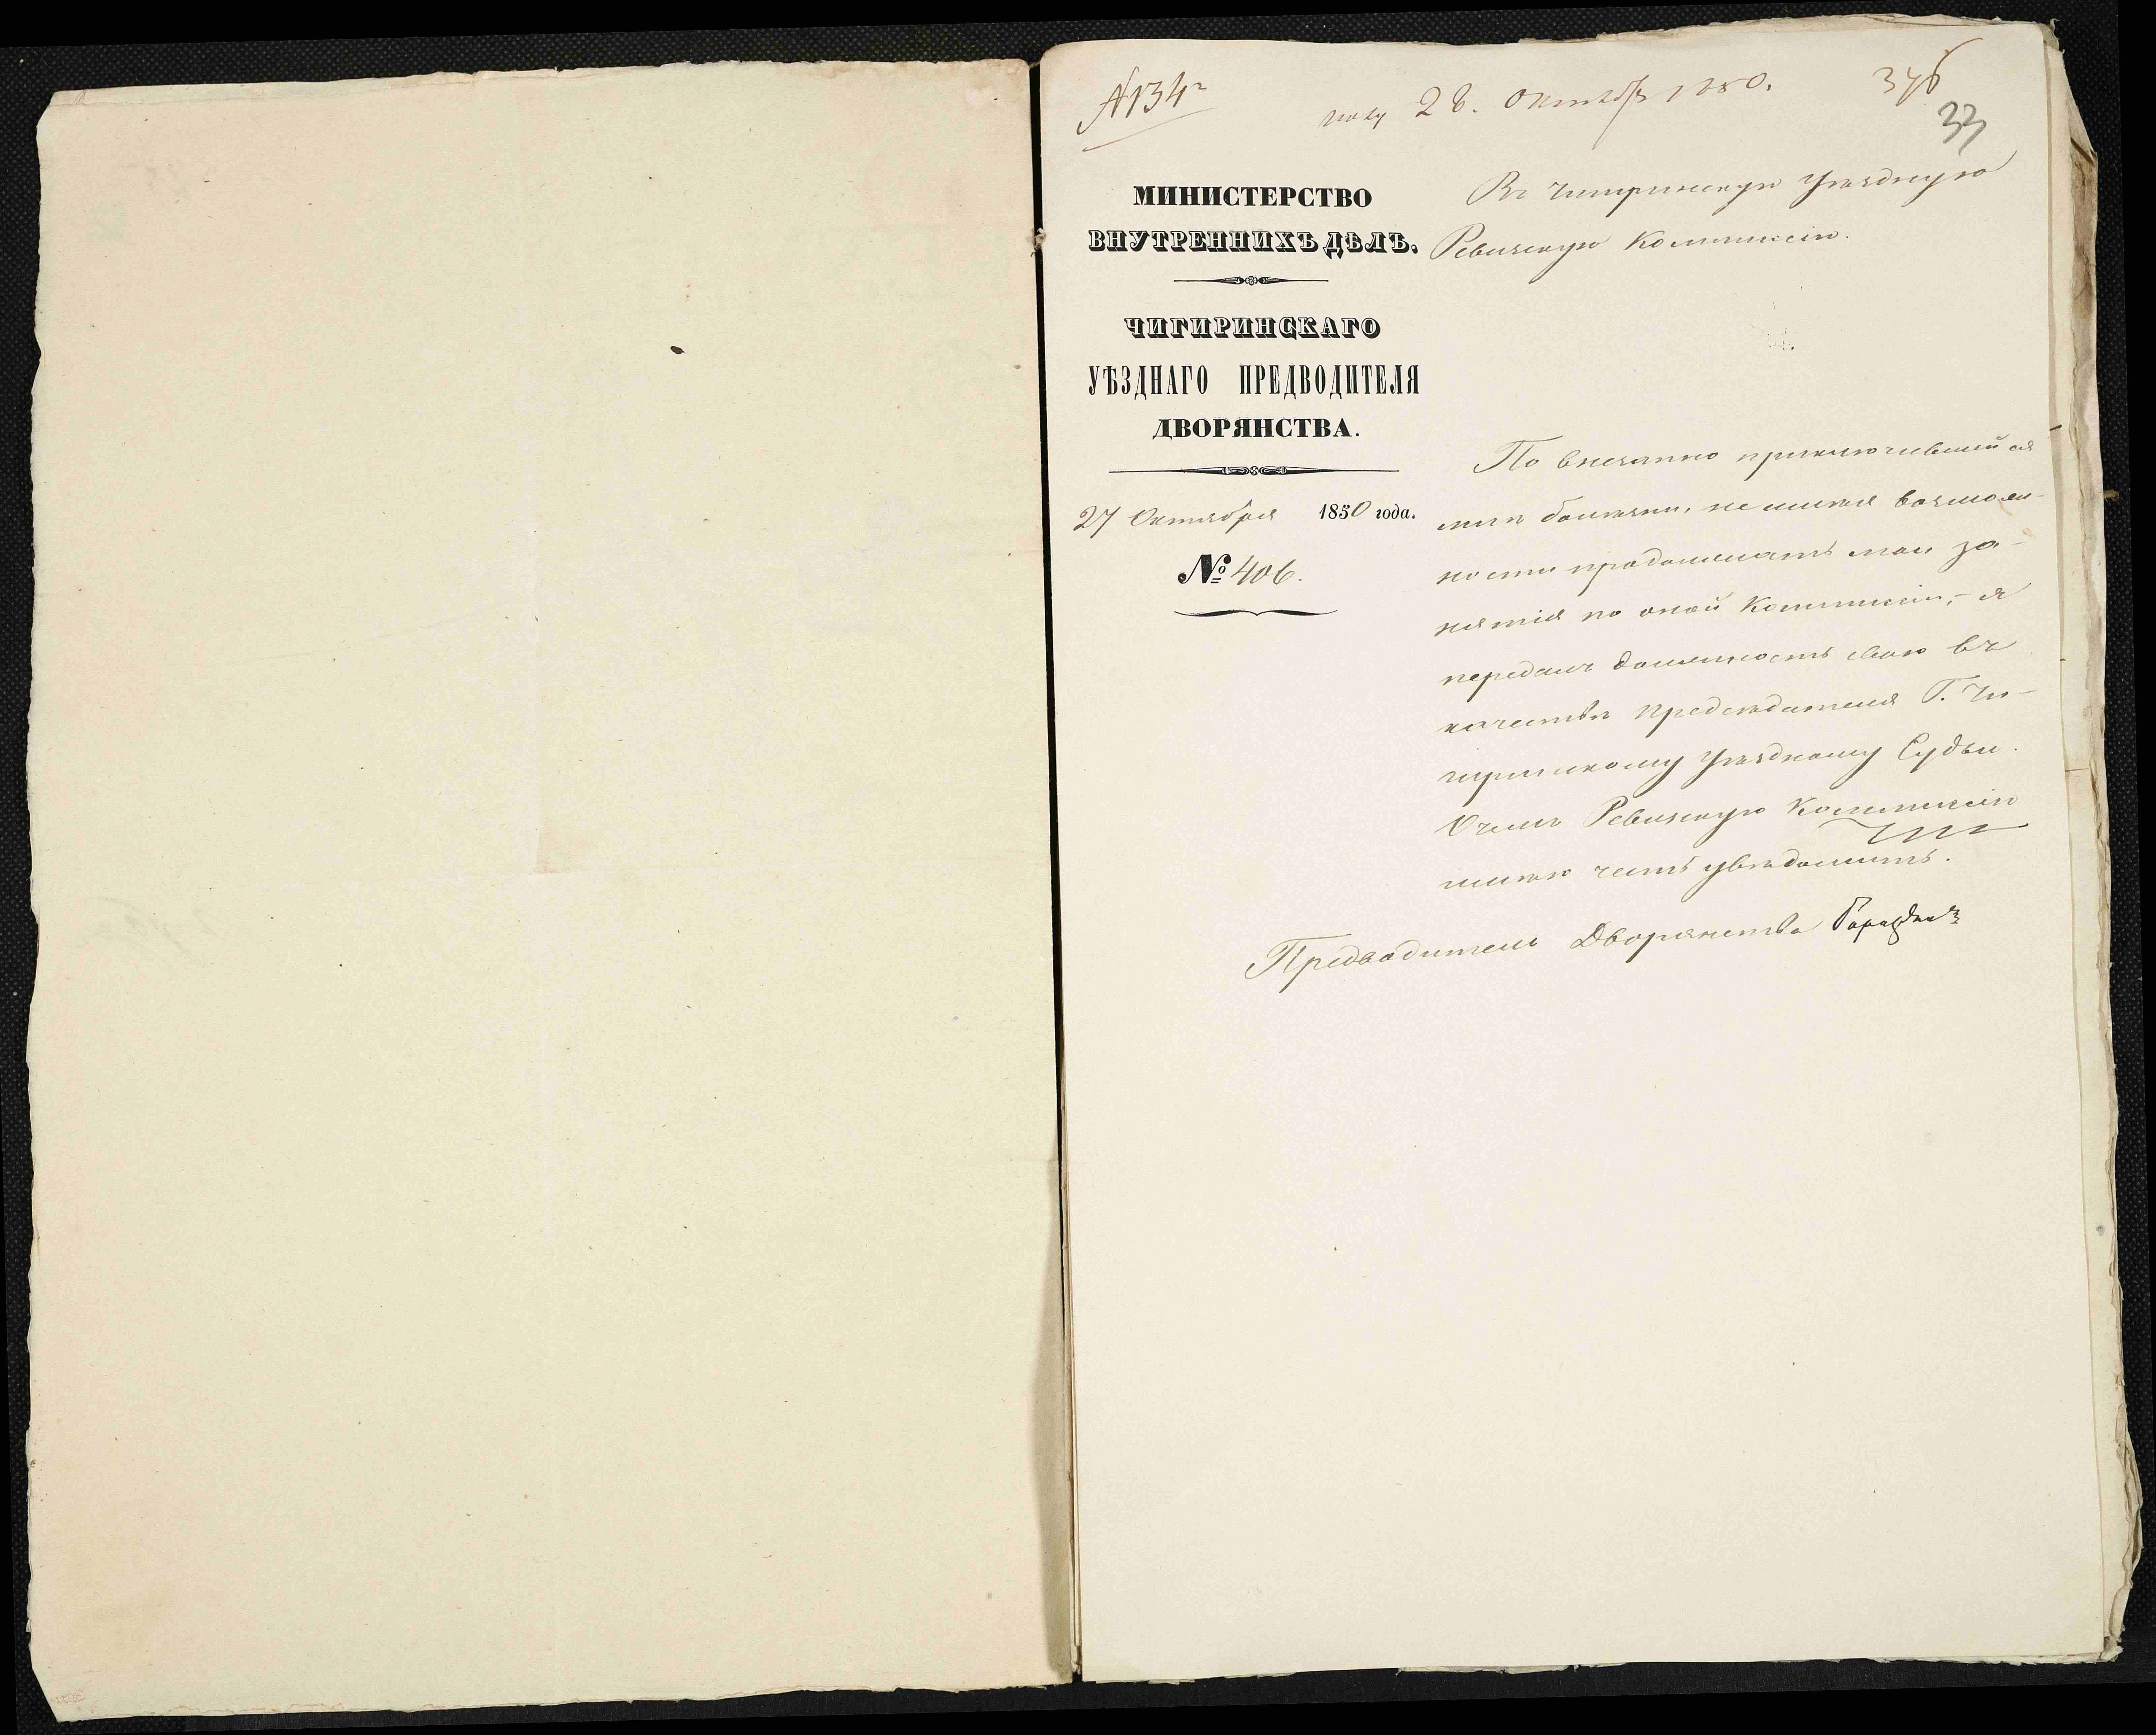 №134
полу 28. Октября 1850.
346
33
МИНИСТЕРСТВО
ВНУТРЕННИХЪ ДѢЛЪ.
ЧИГИРИНСКАГО
УѢЗДНАГО ПРЕДВОДИТЕЛЯ
ДВОРЯНСТВА.
27 Октября 1850 года.
№ 406.
Въ Чигиринскую Уѣздную
Ревизскую Коммиссію.
По внезапно приключившейся
мнѣ болѣзни, не имѣя возмож-
ности продолжать мои за-
нятія по оной Коммиссіи,- я
передалъ должность свою въ
качествѣ Предсѣдателя Г. Чи-
гиринскому Уѣздному Судьи.
О чемъ Ревизскую Коммиссію
имѣю честь увѣдомить.
Предводитель Дворянства